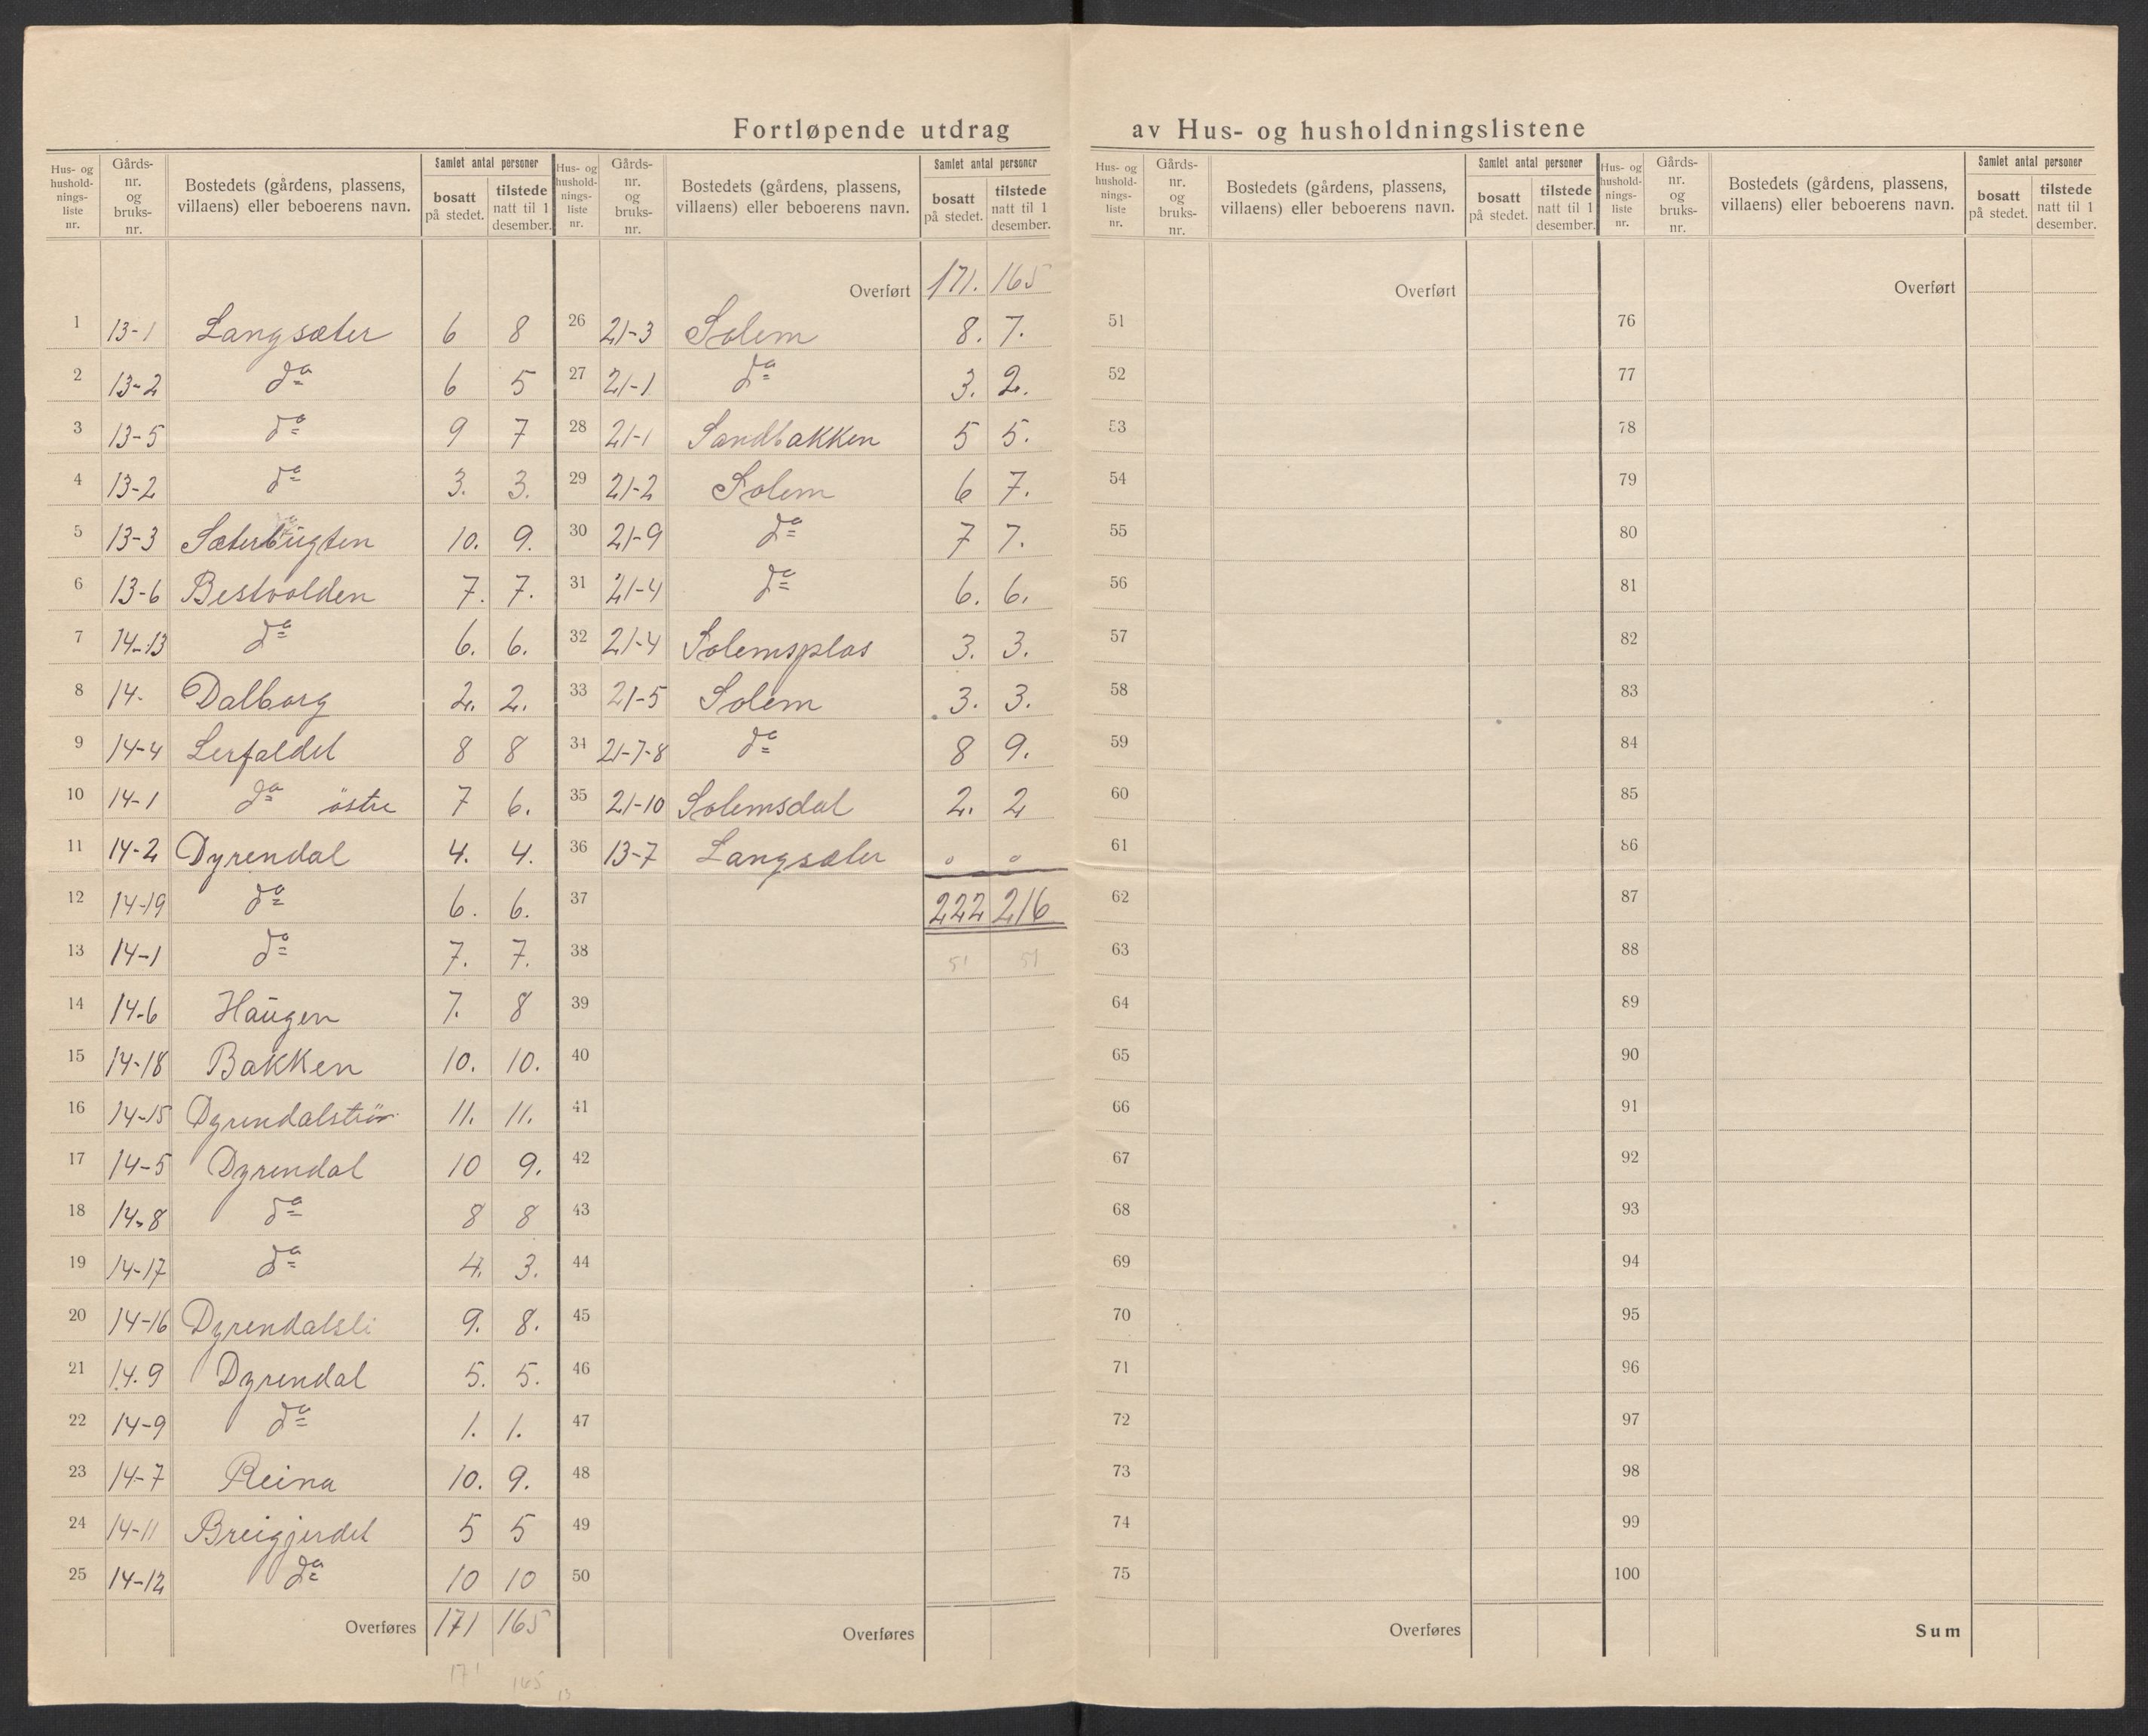 Fortløpende utdrag av Hus- og husholdningslistene
Hus- og hushold- nings- liste nr. | Gårds- nr. og bruks- nr. | Bostedets (gårdens, plassens, villaens) eller beboerens navn. | Samlet antal personer | bosatt på stedet. | tilstede natt til 1 desember.
1 13-1 Langsæter 6 8
2 13-2 da 6 5
3 13-5 da 9 7
4 13-2 da 3. 3.
5 13-3 Sæterbugten 10. 9.
6 13-6 Bestvolden 7. 7.
7 14-13 da 6. 6.
8 14- Dalborg 2. 2.
9 14-4 Lerfaldet 8 8
10 14-1 da östre 7 6.
11 14-2 Dyrendal 4. 4.
12 14-19 da 6. 6.
13 14-1 da 7. 7.
14 14-6 Haugen 7. 8
15 14-18 Bakken 10. 10.
16 14-15 Dyrendalströr 11. 11.
17 14-5 Dyrendal 10 9.
18 14-8 da 8 8
19 14-17 da 4. 3.
20 14-16 Dyrendalsli 9. 8.
21 14.9 Dyrendal 5. 5.
22 14-9 da 1. 1.
23 14-7 Reina 10. 9.
24 14-11 Breigjerdet 5 5
25 14-12 da 10 10
Overføres 171 165
171 165
13
Hus- og hushold- nings- liste nr. | Gårds- nr. og bruks- nr. | Bostedets (gårdens, plassens, villaens) eller beboerens navn. | Samlet antal personer | bosatt på stedet. | tilstede natt til 1 desember.
Overført 171. 165
26 21-3 Solem 8. 7.
27 21-1 da 3. 2.
28 21-1 Sandbakken 5 5.
29 21-2 Solem 6 7.
30 21-9 da 7 7.
31 21-4 da 6. 6.
32 21-4 Solemsplas 3. 3.
33 21-5 Solem 3. 3.
34 21-7-8 da 8 9.
35 21-10 Solemsdal 2. 2
36 13-7 Langsæter 0 0
37 222 216
38 51 51
39
40
41
42
43
44
45
46
47
48
49
50
Overføres
Hus- og hushold- nings- liste nr. | Gårds- nr. og bruks- nr. | Bostedets (gårdens, plassens, villaens) eller beboerens navn. | Samlet antal personer | bosatt på stedet. | tilstede natt til 1 desember.
Overført
51
52
53
54
55
56
57
58
59
60
61
62
63
64
65
66
67
68
69
70
71
72
73
74
75
Overføres
Hus- og hushold- nings- liste nr. | Gårds- nr. og bruks- nr. | Bostedets (gårdens, plassens, villaens) eller beboerens navn. | Samlet antal personer | bosatt på stedet. | tilstede natt til 1 desember.
Overført
76
77
78
79
80
81
82
83
84
85
86
87
88
89
90
91
92
93
94
95
96
97
98
99
100
Sum